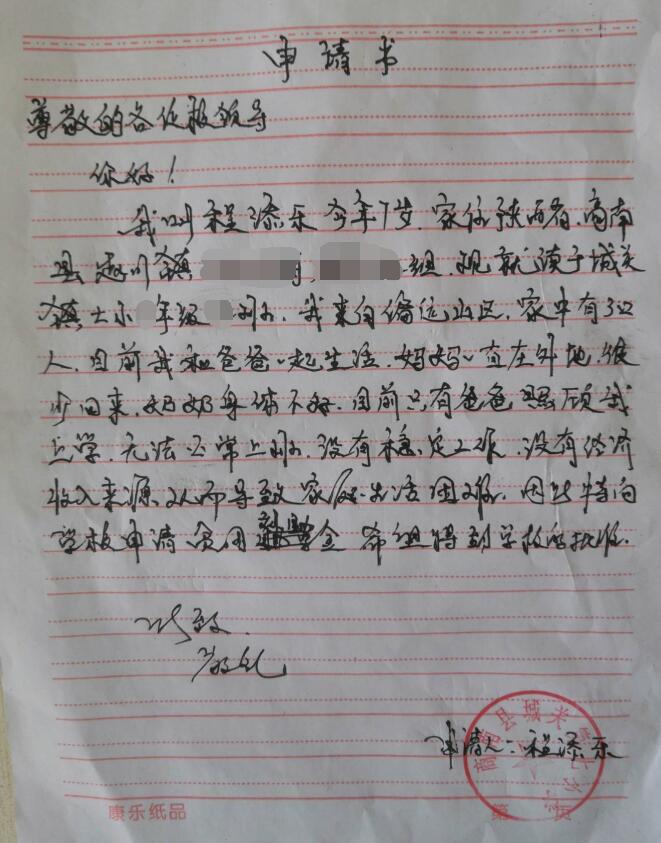 申请书
尊敬的各位校领导
你好！
我叫程添乐今年7岁.家住陕西省.商南
县赵川镇 组.现就读于城关
镇土小 年级 班.我来自偏远山区.家中有3口
人.目前我和爸爸一起生活.妈妈一直在外地.很
少回来.奶奶身体不好.目前只有爸爸照顾我
上学.无法正常上班.没有稳定工作.没有经济
收入来源.从而导致家庭生活困难.因此特向
学校申请贫困 金希望得到学校的批准.
此致.
敬礼
申请人:程添乐
商南县城关镇
康乐纸品
第 页